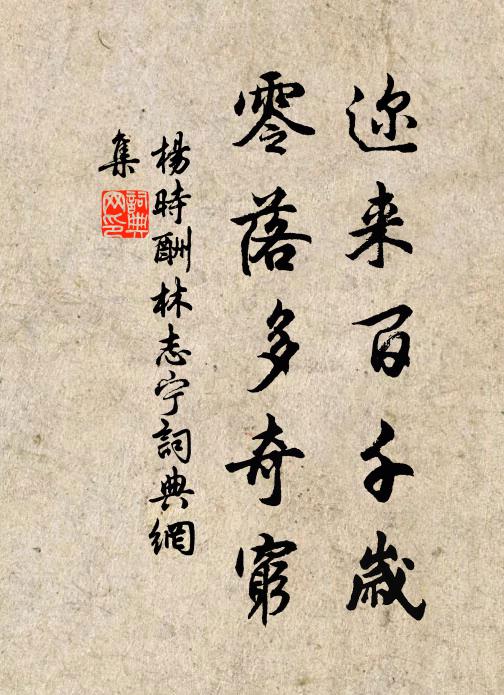 迩来百千歳
零落多奇窮
楊時酬林志宁詞典網
集
詞典网印